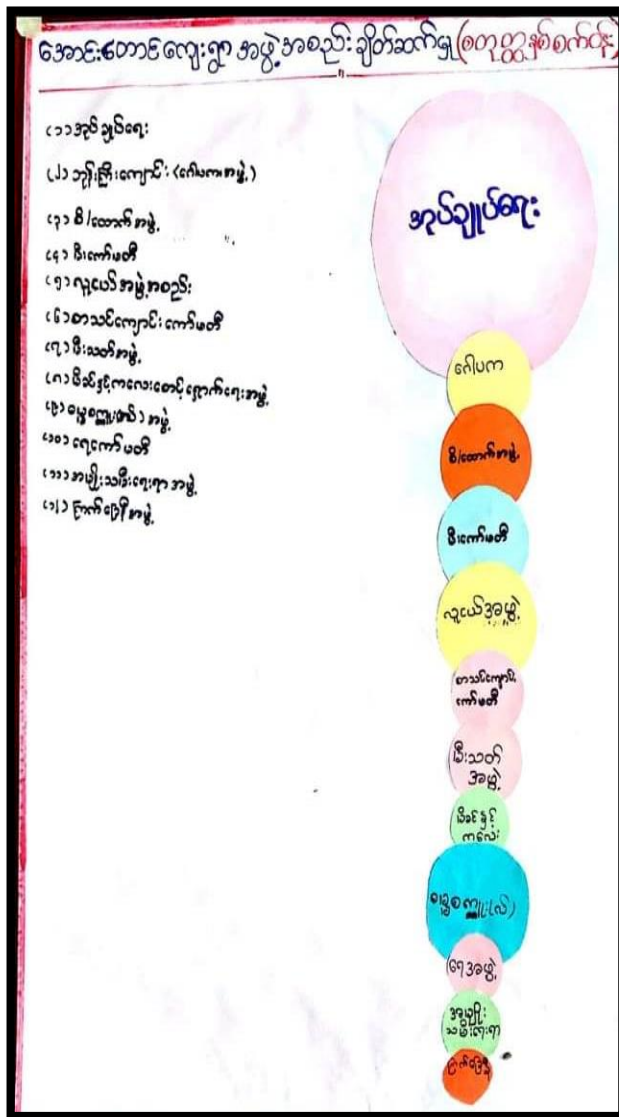 အောင်းတောင်ကျေးရွာ အဖွဲ့အစည်းချိတ်ဆက်မှု (စတုတ္ထနှစ်စက်ဝန်း)
(၁) အုပ်ချုပ်ရေး
(၂) ဘုန်းကြီးကျောင်း (ဂေါပကအဖွဲ့)
(၃) စီ/ထောက်အဖွဲ့
(၄) မီးကော်မတီ
(၅) လူငယ်အဖွဲ့အစည်း
(၆) စာသင်ကျောင်းကော်မတီ
(၇) မီးသတ်အဖွဲ့
(၈) မိခင်နှင့်ကလေးစောင့်ရှောက်ရေးအဖွဲ့
(၉) ဓမ္မစကူး(လ်) အဖွဲ့
(၁၀) ရေကော်မတီ
(၁၁) အမျိုးသမီးရေးရာအဖွဲ့
(၁၂) ကြက်ခြေနီအဖွဲ့
အုပ်ချုပ်ရေး
ဂေါပက
စီ/ထောက်အဖွဲ့
မီးကော်မတီ
လူငယ်အဖွဲ့
စာသင်ကျောင်း
ကော်မတီ
မီးသတ်
အဖွဲ့
မိခင်နှင့်
ကလေး
ဓမ္မစကူး(လ်)
ရေအဖွဲ့
အမျိုး
သမီးရေးရာ
ကြက်ခြေနီ